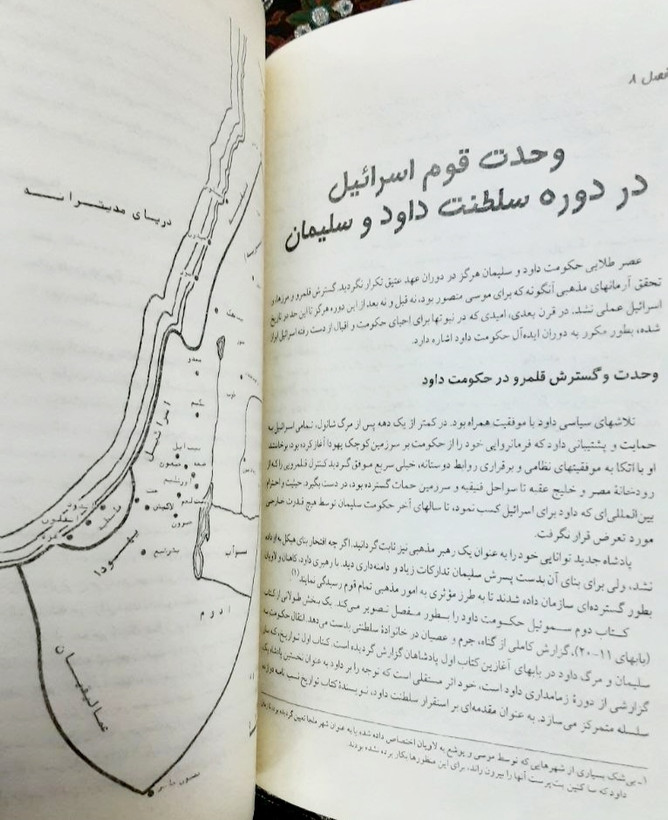 فصل ۸
وحدت قوم اسرائیل
در دوره سلطنت داود و سلیمان
عصر طلایی حکومت داود و سلیمان هرگز در دوران عهد عتیق تکرار نگردید. گسترش قلمرو و مرزها، و
تحقق آرمانهای مذهبی آنگونه که برای موسی متصور بود، نه قبل و نه بعد از این دوره هرگز تا این حد در تاریخ
اسرائیل عملی نشد. در قرن بعدی، امیدی که در نبوتها برای احیای حکومت و اقبال از دست رفته اسرائیل ابراز
شده، بطور مکرر به دوران ایده‌آل حکومت داود اشاره دارد.
وحدت و گسترش قلمرو در حکومت داود
تلاشهای سیاسی داود با موفقیت همراه بود. در کمتر از یک دهه پس از مرگ شائول، تمامی اسرائیل به
حمایت و پشتیبانی داود که فرمانروایی خود را از حکومت بر سرزمین کوچک یهودا آغاز کرده بود، برخاستند.
او با اتکا به موفقیتهای نظامی و برقراری روابط دوستانه، خیلی سریع موفق گردید کنترل قلمرویی را که از
رودخانهٔ مصر و خلیج عقبه تا سواحل فنیقیه و سرزمین حمات گسترده بود، در دست بگیرد. حیثیت و احترام
بین‌المللی‌ای که داود برای اسرائیل کسب نمود، تا سالهای آخر حکومت سلیمان توسط هیچ قدرت خارجی
مورد تعرض قرار نگرفت.
پادشاه جدید توانایی خود را به عنوان یک رهبر مذهبی نیز ثابت گردانید. اگر چه افتخار بنای هیکل به او داده
نشد، ولی برای بنای آن بدست پسرش سلیمان تدارکات زیاد و دامنه‌داری دید. با رهبری داود، کاهنان و لاویان
بطور گسترده‌ای سازمان داده شدند تا به طرز مؤثری به امور مذهبی تمام قوم رسیدگی نمایند(۱)
کتاب دوم سموئیل حکومت داود را بطور مفصل تصویر می‌کند. یک بخش طولانی از کتاب
(بابهای ۱۱-۲۰)، گزارش کاملی از گناه، جرم و عصیان در خانوادهٔ سلطنتی بدست می‌دهد. انتقال حکومت به
سلیمان و مرگ داود در بابهای آغازین کتاب اول پادشاهان گزارش گردیده است. کتاب اول تواریخ، که
گزارشی از دورهٔ زمامداری داود است، خود اثر مستقلی است که توجه را بر داود به عنوان نخستین پادشاه یک
سلسله متمرکز می‌سازد. به عنوان مقدمه‌ای بر استقرار سلطنت داود، نویسندهٔ کتاب تواریخ نسب نامه
۱- بی شک بسیاری از شهرهایی که توسط موسی و یوشع به لاویان اختصاص داده شده یا به عنوان شهر ملجا تعیین گردیده بود تا زمان
داود که ساکنین بت‌پرست آنها را بیرون راند، برای این منظورها بکار برده نشده بودند.
دریای مدیترانه
اسرائیل
یهودا
موآب
ادوم
عمالیقیان
حبرون